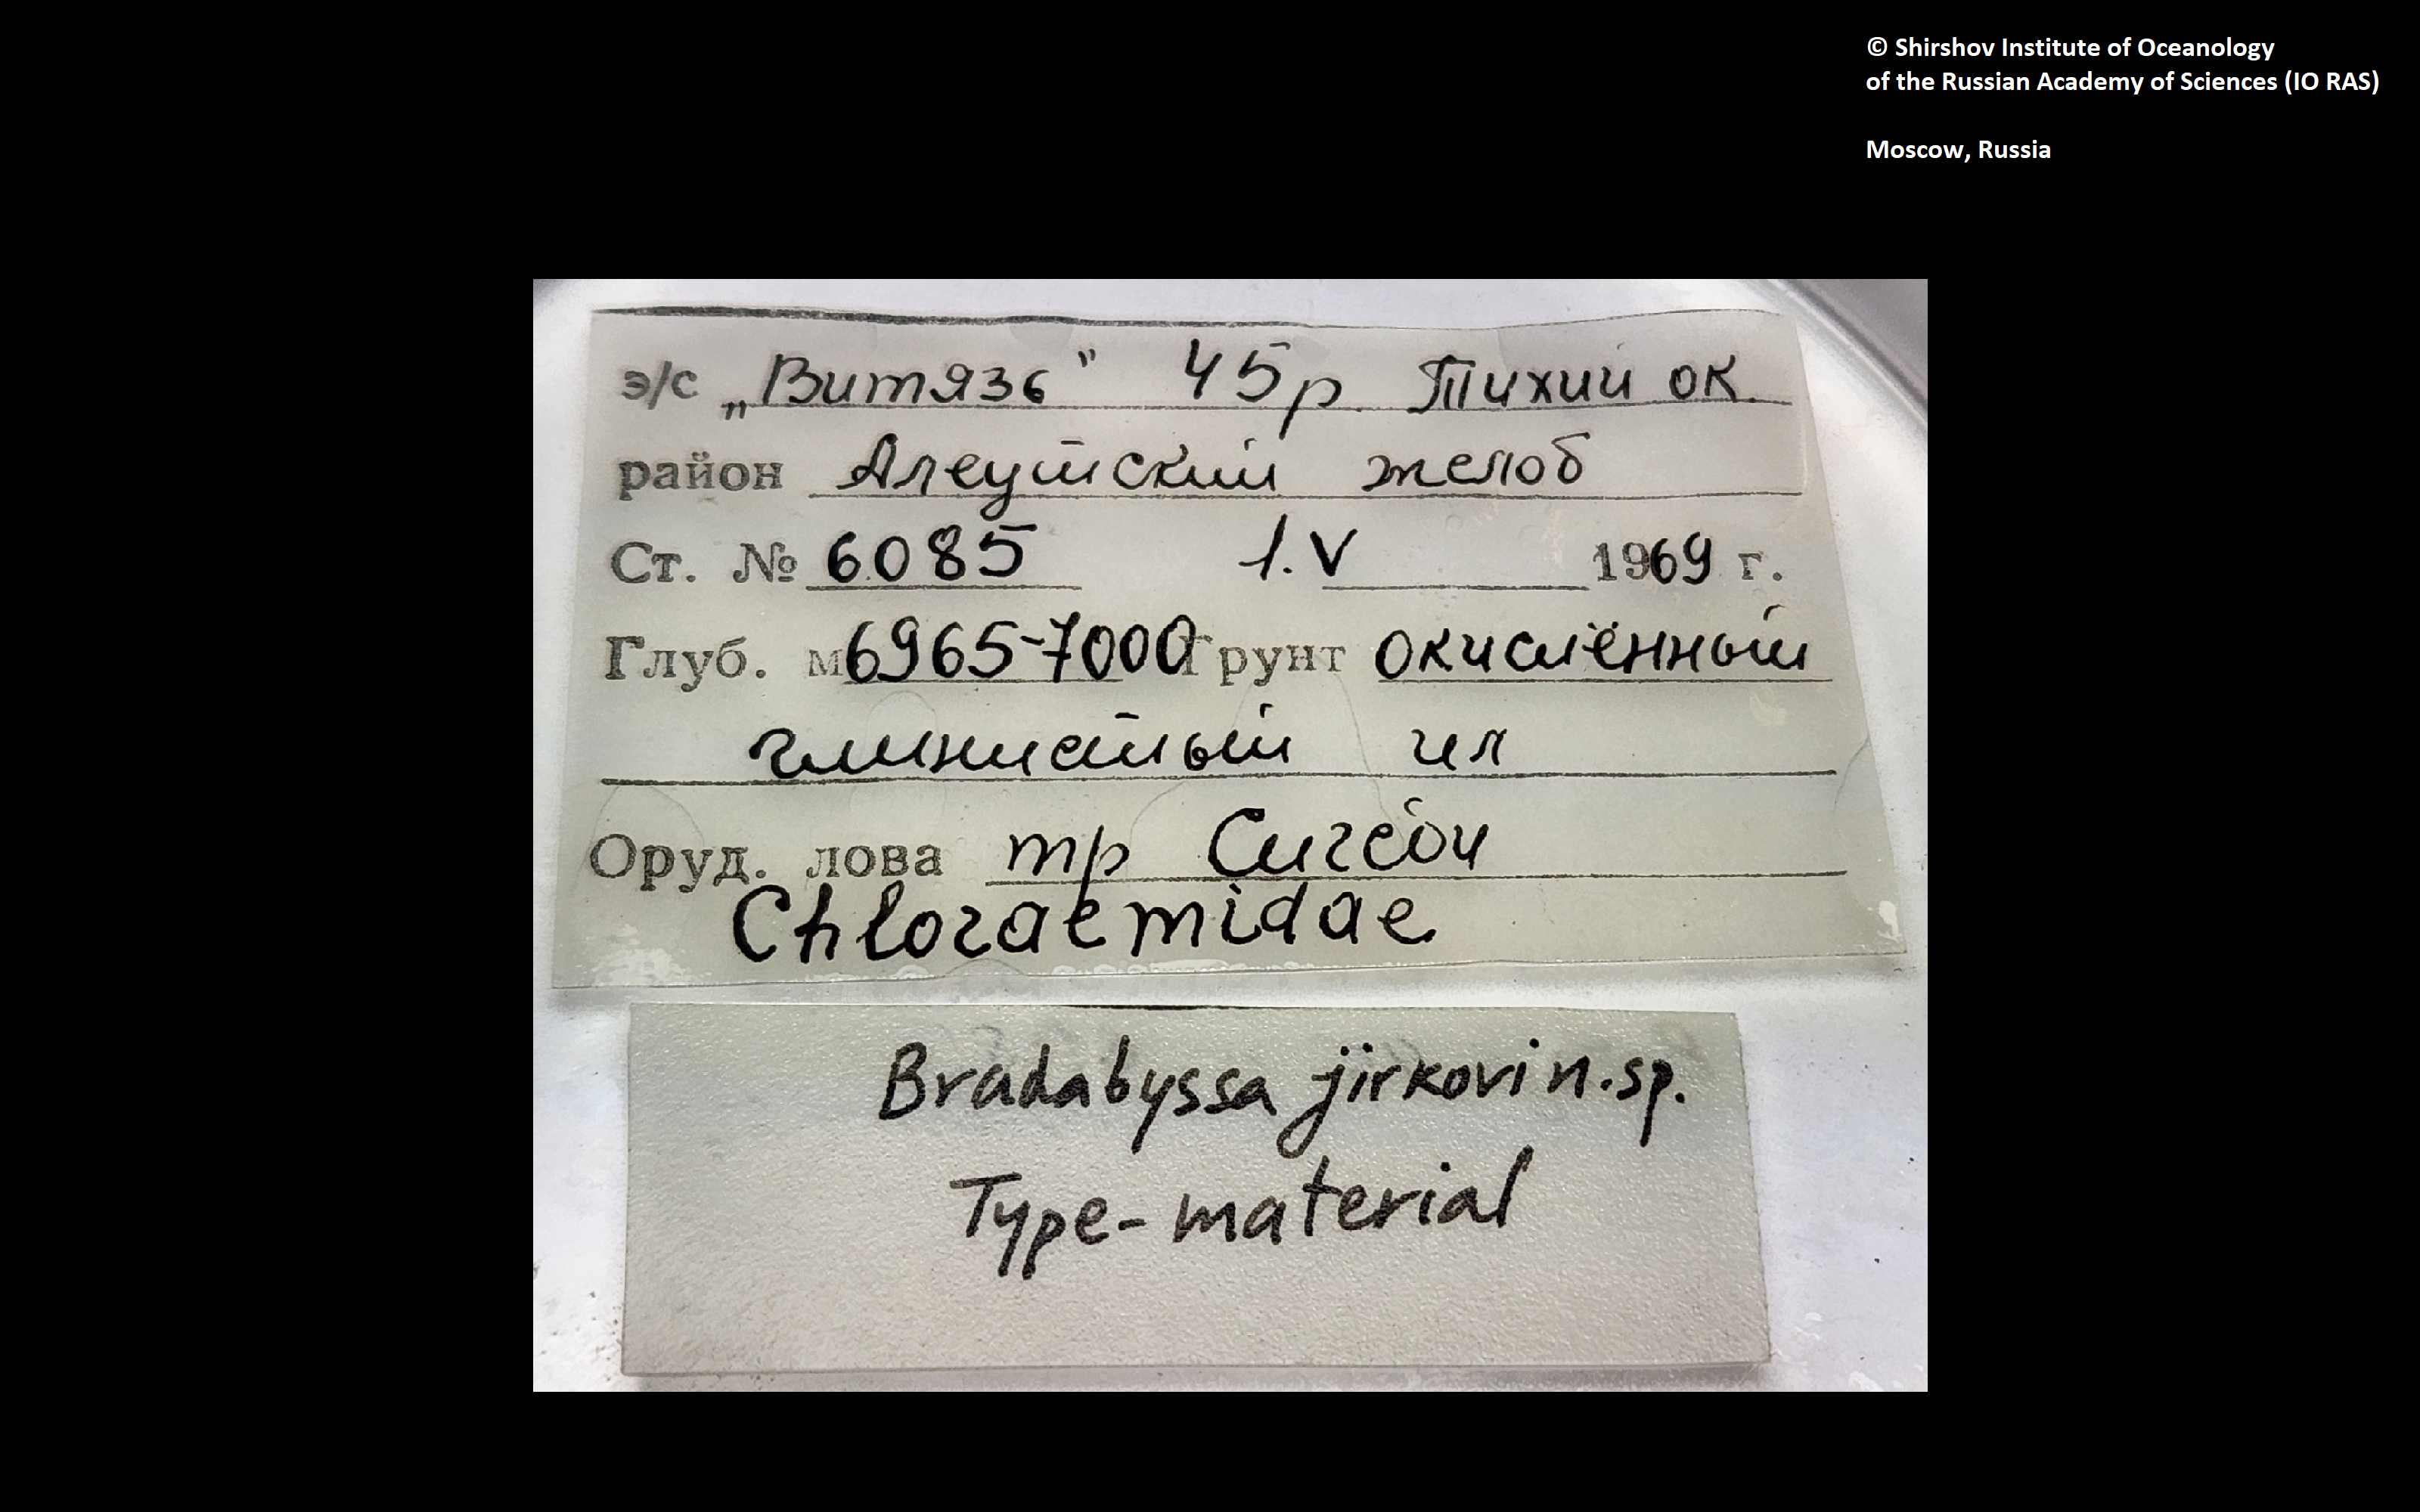 © Shirshov Institute of Oceanology
of the Russian Academy of Sciences (IO RAS)
Moscow, Russia
э/с „Витязь" 45р. Тихий ок.
район Алеутский желоб
Ст. № 6085 1.V 1969 г.
Глуб. м 6965-7000 Грунт окислённый
глинистый ил
Оруд. лова тр Сигсби
Chloraemidae
Bradabyssa jirkovi n.sp.
Type-material